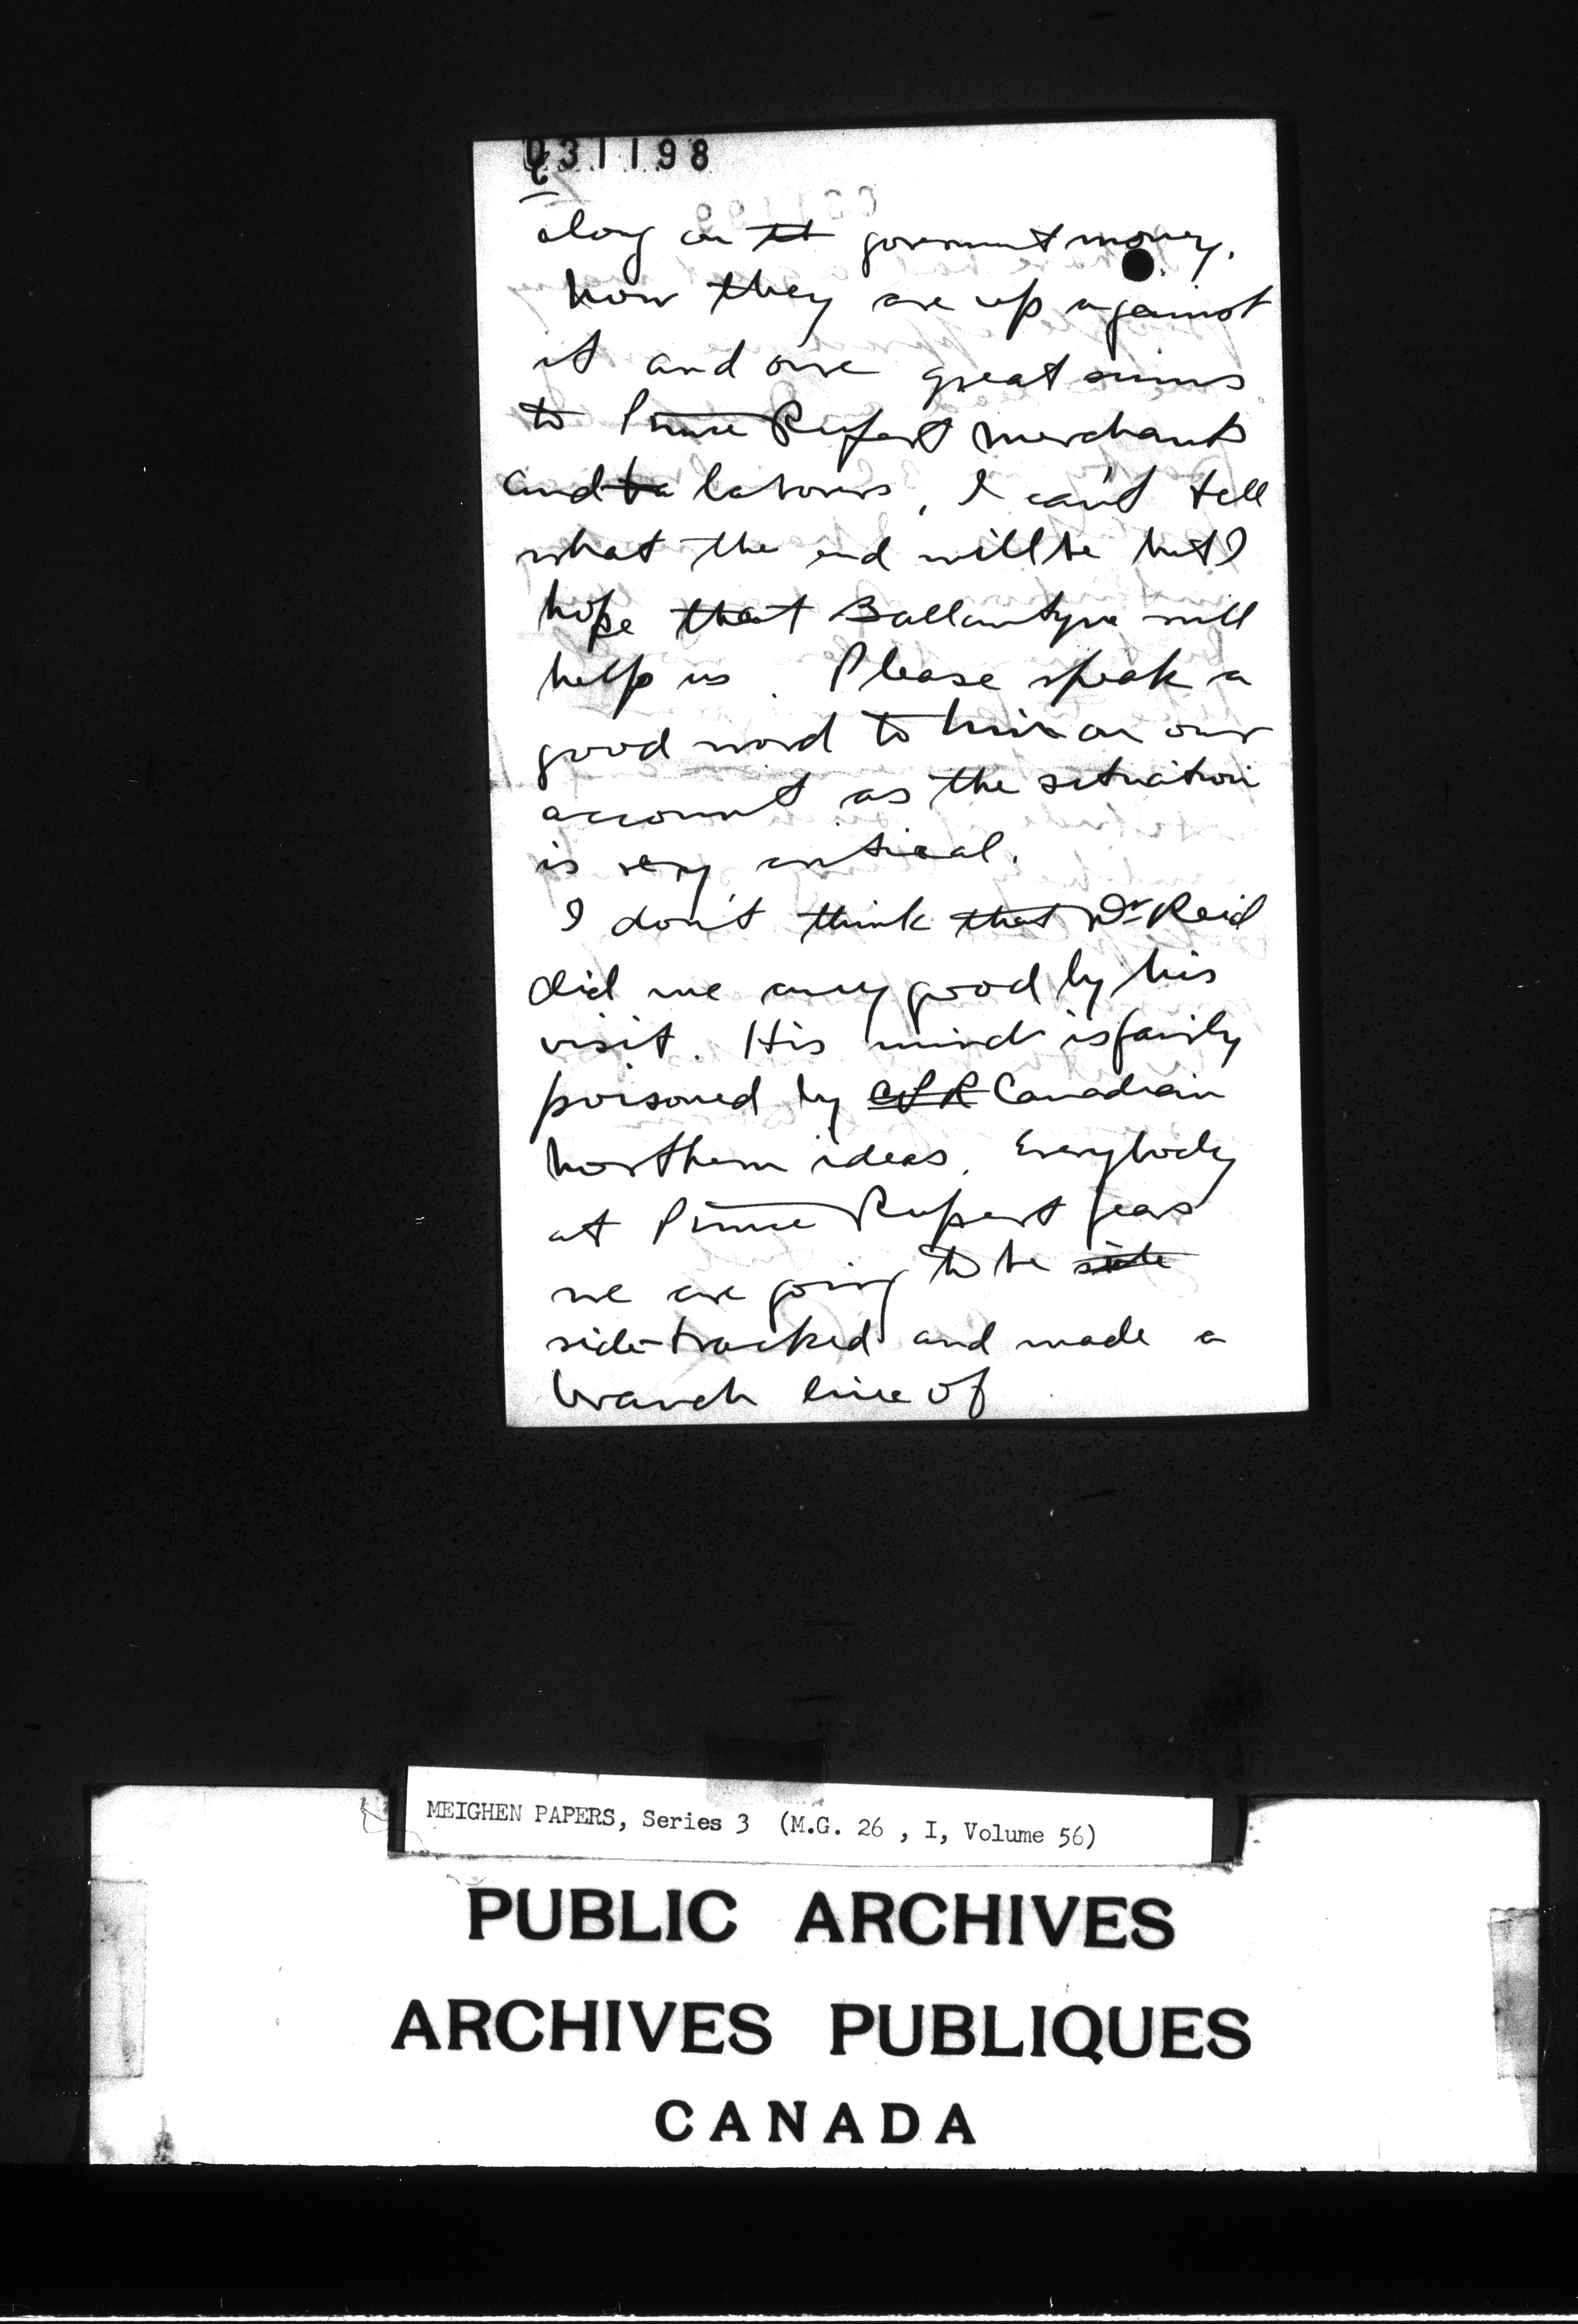 031198
2
along on ~~tt~~ government money.
Now they are up against
it and owe great sums
to Prince Rupert merchants
and ~~ba~~ laborers, I can't tell
what the end will be but I
hope that Ballantyne will
help us. Please speak a
good word to him on our
account as the situation
is very critical.
I don't think that Dr Reid
did me any good by his
visit. His mind is fairly
poisoned by ~~CPR~~ Canadian
Northern ideas. Everybody
at Prince Rupert fears
we are going to be ~~side~~
side-tracked and made a
branch line of
MEIGHEN PAPERS, Series 3 (M.G. 26 , I, Volume 56)
PUBLIC ARCHIVES
ARCHIVES PUBLIQUES
CANADA